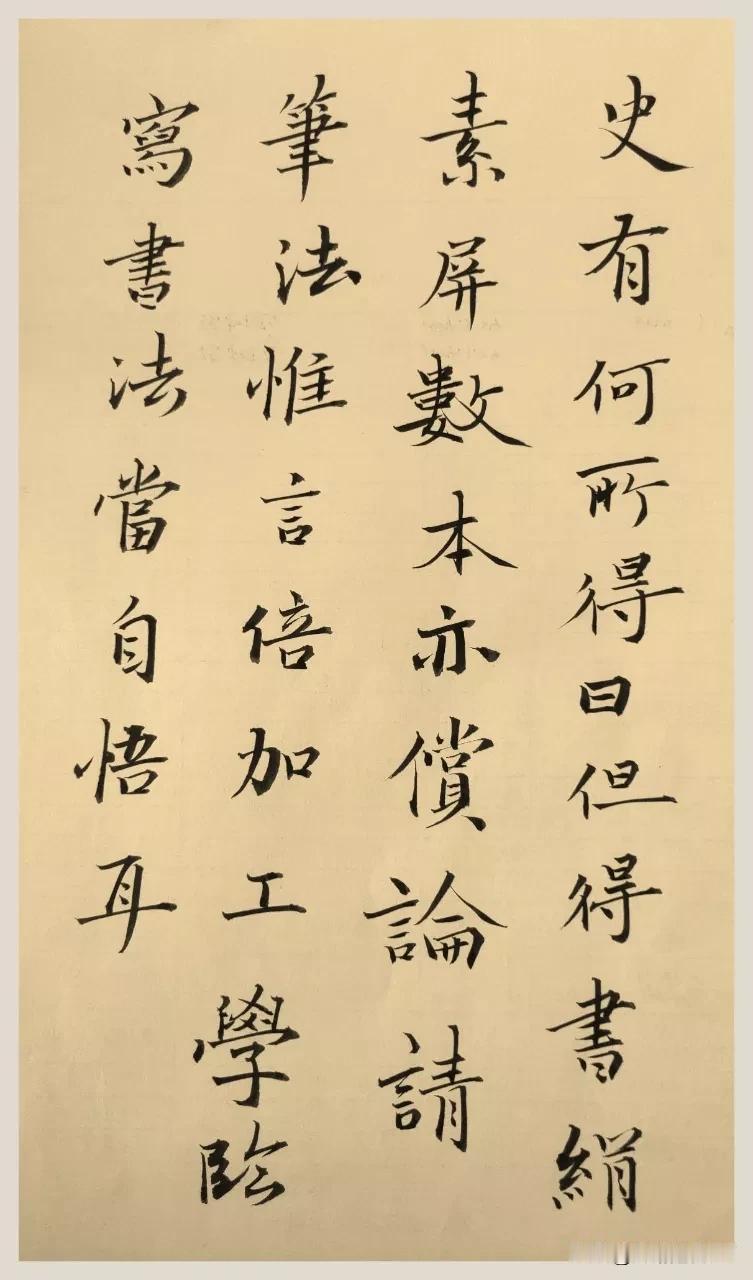 史有何所得曰但得書絹
素屏數本亦償論請
筆法惟言倍加工學臨
寫書法當自悟耳